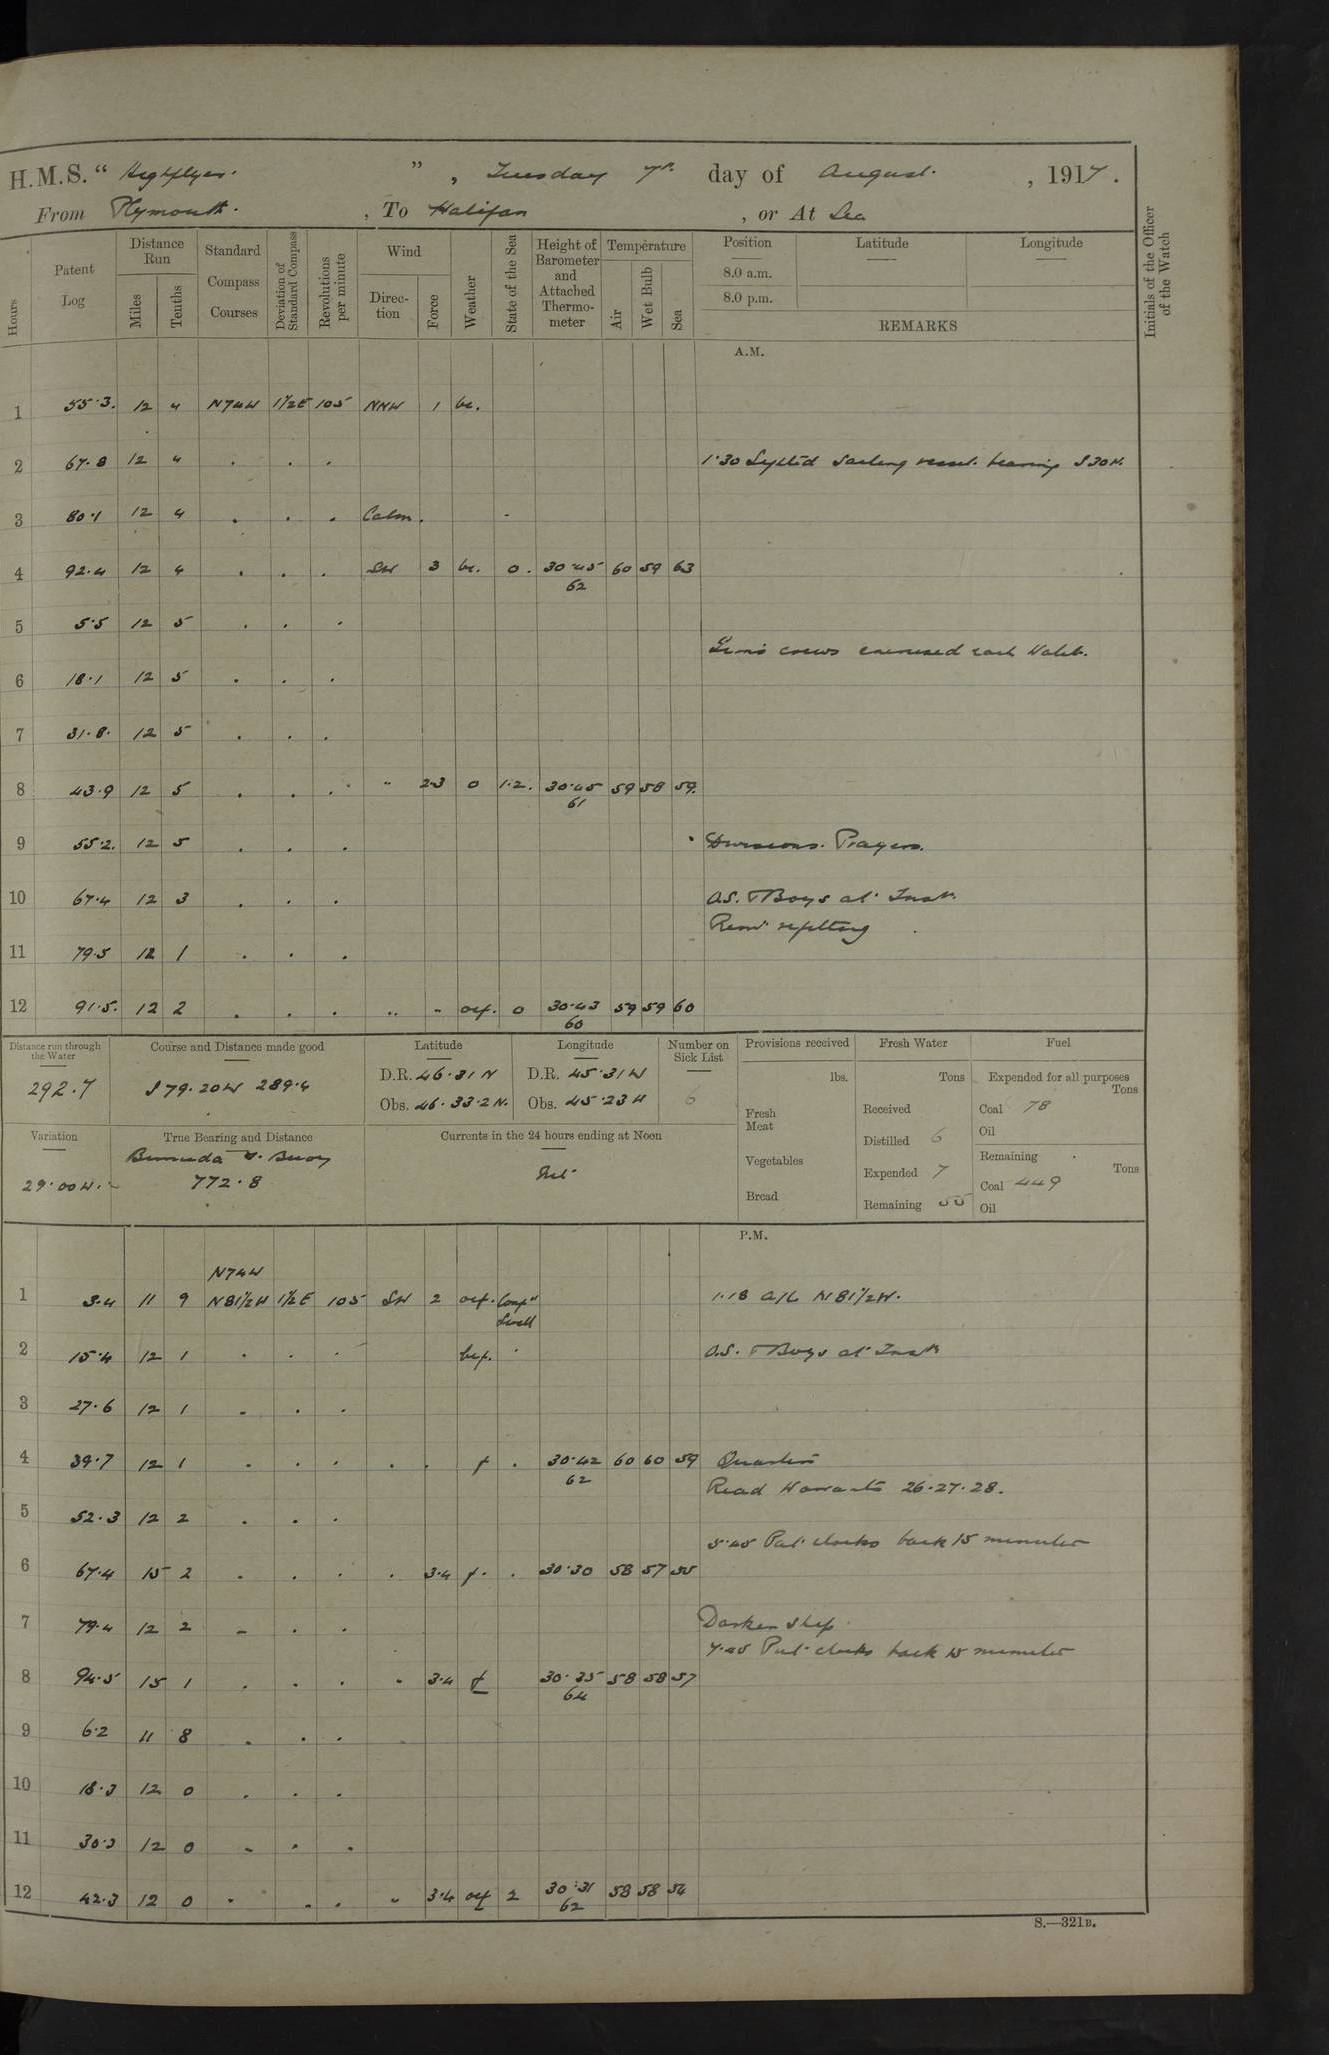 H.M.S. " Highflyer. ", Tuesday 7th day of August. , 1917.
From Plymouth. , To Halifax , or At Sea
Hours
Patent Log
Distance Run
Miles
Tenths
Standard Compass Courses
Deviation of Standard Compass
Revolutions per minute
Wind
Direction
Force
Weather
State of the Sea
Height of Barometer and Attached Thermometer
Temperature
Air
Wet Bulb
Sea
Position
8.0 a.m.
8.0 p.m.
Latitude
Longitude
REMARKS
Initials of the Officer of the Watch
A.M.
1 55.3. 12 4 N74W 1½E 105 NNW 1 bc.
2 67.8 12 4 . . . 1.30 Sighted Sailing vessel bearing
3 80.1 12 4 . . . Calm.
4 92.4 12 4 . . . SW 3 bc. 0. 30.45 60 59 63
62
5 5.5 12 5 . . .
Guns crews exercised each Watch.
6 18.1 12 5 . . .
7 31.8. 12 5 . . .
8 43.9 12 5 . . . " 2.3 0 1.2. 30.45 59 58 59.
61
9 55.2. 12 5 . . . Divisions. Prayers.
10 67.4 12 3 . . . O.S. & Boys at Instn.
Remr refitting
11 79.5 12 1 . . .
12 91.5. 12 2 . . . " " ocf. 0 30.43 59 59 60
60
Distance run through the Water
292.7
Course and Distance made good
S 79.20W 289.4
Latitude
D.R. 46.31 N
Obs. 46.33.2 N.
Longitude
D.R. 45.31 W
Obs. 45.23 W
Number on Sick List
6
Provisions received
lbs.
Fresh Meat
Vegetables
Bread
Fresh Water
Tons
Received
Distilled 6
Expended 7
Remaining 55
Fuel
Expended for all purposes
Tons
Coal 78
Oil
Remaining
Tons
Coal 449
Oil
Variation
29.00 W.
True Bearing and Distance
Bermuda Buoy
772.8
Currents in the 24 hours ending at Noon
Nil
P.M.
N74W
1 3.4 11 9 N81½W 1½E 105 SW 2 ocf. Conf'd 1.18 A/C N81½W.
Swell
2 15.4 12 1 . . . bcf. . O.S. & Boys at Instn
3 27.6 12 1 . . .
4 39.7 12 1 . . . . . f . 30.42 60 60 59 Quarters
62
Read Warrants 26.27.28.
5 52.3 12 2 . . .
5.45 Put clocks back 15 minutes
6 67.4 15 2 . . . . 3.4 f. . 30.30 58 57 55
7 79.4 12 2 . . . Darken Ship
7.45 Put clocks back 15 minutes
8 94.5 15 1 . . . " 3.4 f 30.35 58 58 57
64
9 6.2 11 8 . . .
10 18.3 12 0 . . .
11 30.3 12 0 . . .
12 42.3 12 0 . . . " 3.4 ocf 2 30.31 58 58 54
62
S.—321B.